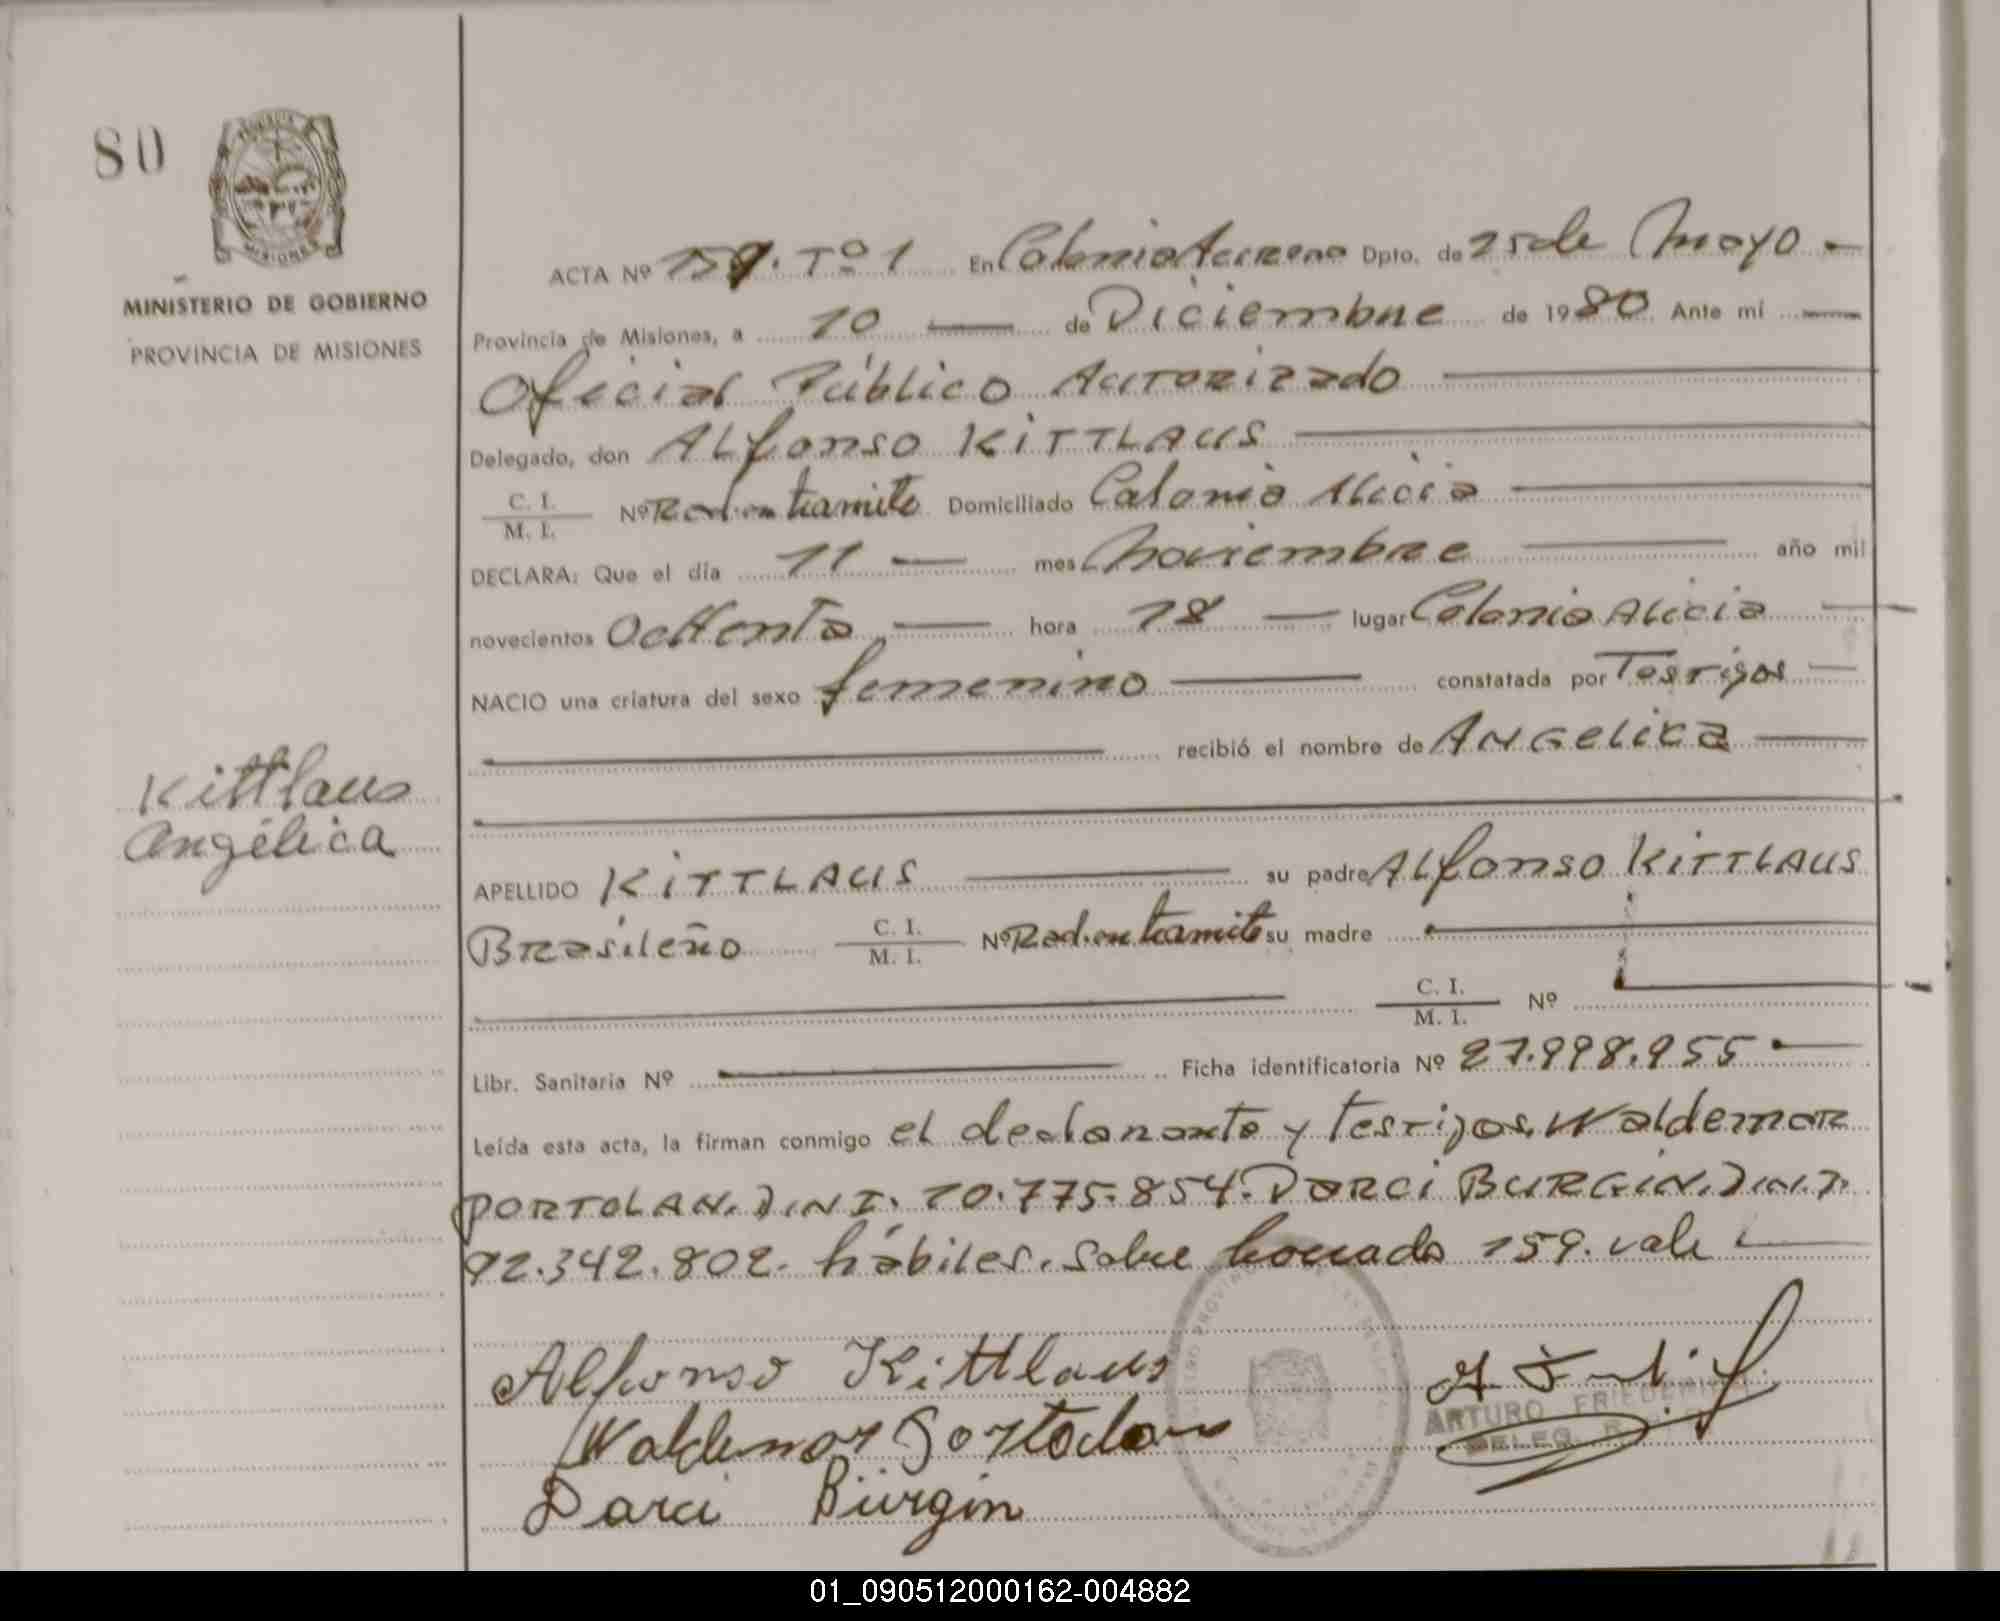 80
MISIONES
MINISTERIO DE GOBIERNO
PROVINCIA DE MISIONES
ACTA Nº 159. Tº 1 En Colonia Aurora Dpto. de 25 de Mayo
Provincia de Misiones, a 10 de Diciembre de 1980 Ante mí
Oficial Público Autorizado
Delegado, don ALfonso KITTLAUS
C. I.
M. I. Nº Rad. en tramite Domiciliado Colonia Alicia
DECLARA: Que el día 11 mes Noviembre año mil
novecientos Ochenta hora 18 lugar Colonia Alicia
NACIO una criatura del sexo femenino constatada por Testigos
recibió el nombre de ANGELICA
Kittlaus
Angélica
APELLIDO KITTLAUS su padre ALfonso KITTLAUS
Brasileño C. I.
M. I. Nº Rad. en tramite su madre
C. I.
M. I. Nº
Libr. Sanitaria Nº Ficha identificatoria Nº 27.998.955
Leída esta acta, la firman conmigo el declarante y testigos, Waldemar
PORTOLAN. D.N.I. 10.775.854. Darci BURGIN. D.N.I.
92.342.802. hábiles. sobre borrado 159. vale
Alfonso Kittlaus
Waldemar Portolan
Darci Bürgin
ARTURO FRIEDERICH
DELEG.
01_090512000162-004882